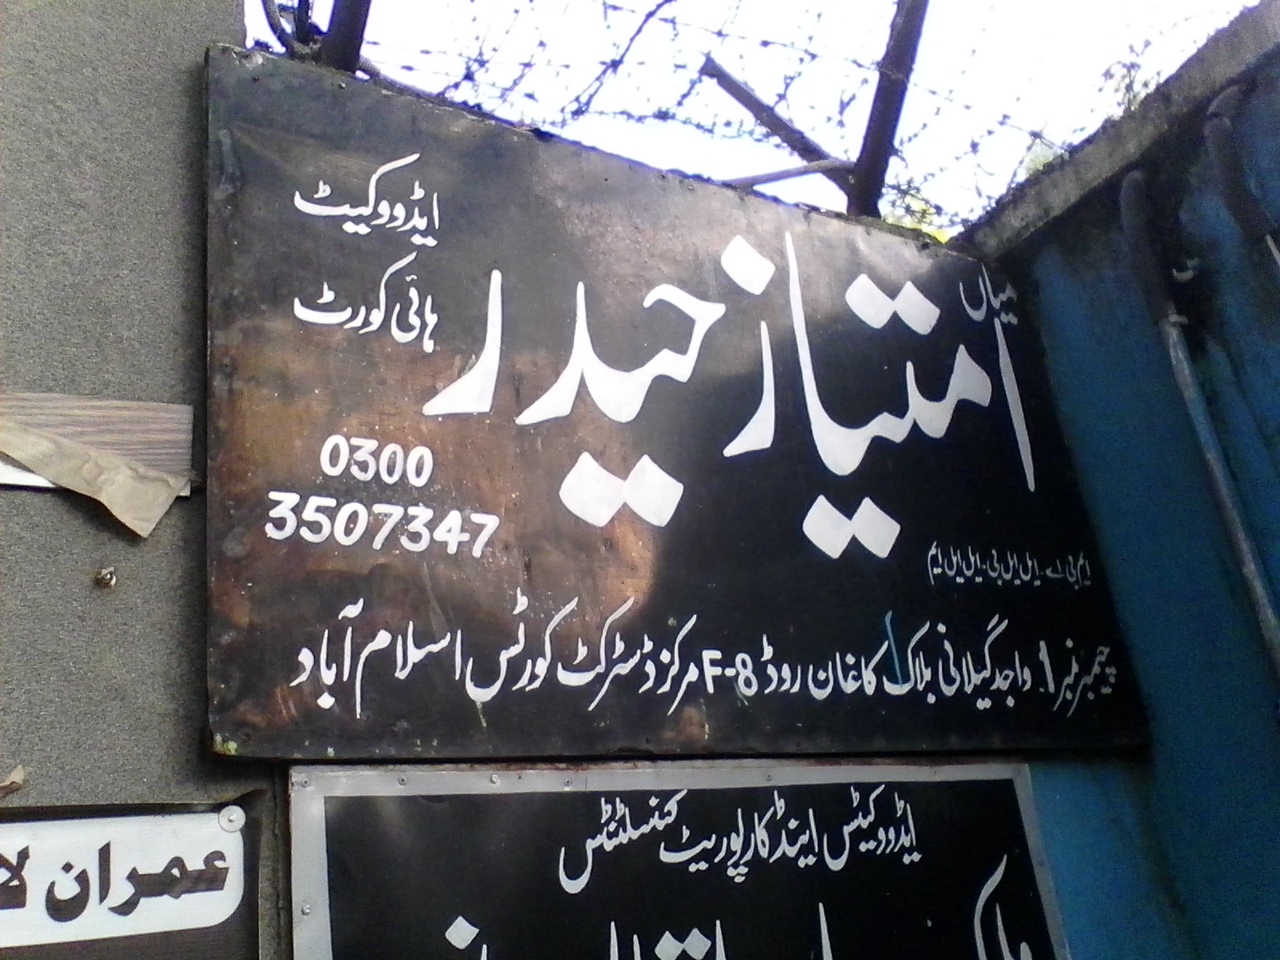 میاں
امتیاز حیدر
ایڈووکیٹ
ہائی کورٹ
0300
3507347
ایم بی اے - ایل ایل بی - ایل ایل ایم
چیمبر نمبر 1. واجد گیلانی بلاک کاغان روڈ F-8 مرکز ڈسٹرکٹ کورٹس اسلام آباد
ایڈووکیٹس اینڈ کارپوریٹ کنسلٹنٹس
عمران لا